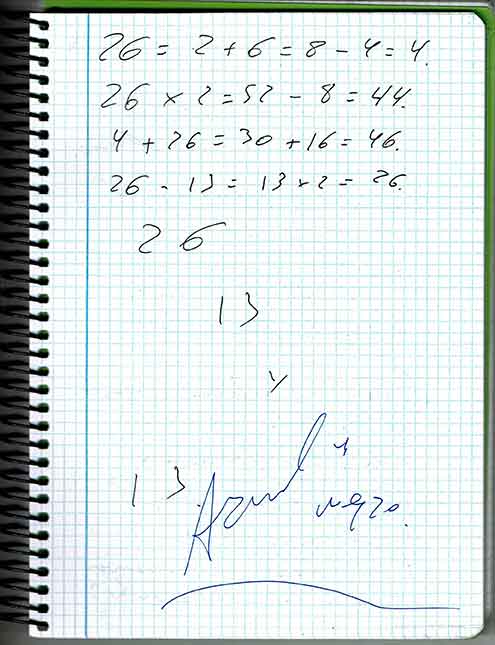 26 = 2 + 6 = 8 - 4 = 4.
26 × 2 = 52 - 8 = 44.
4 + 26 = 30 + 16 = 46.
26 - 13 = 13 × 2 = 26.
26
13
13